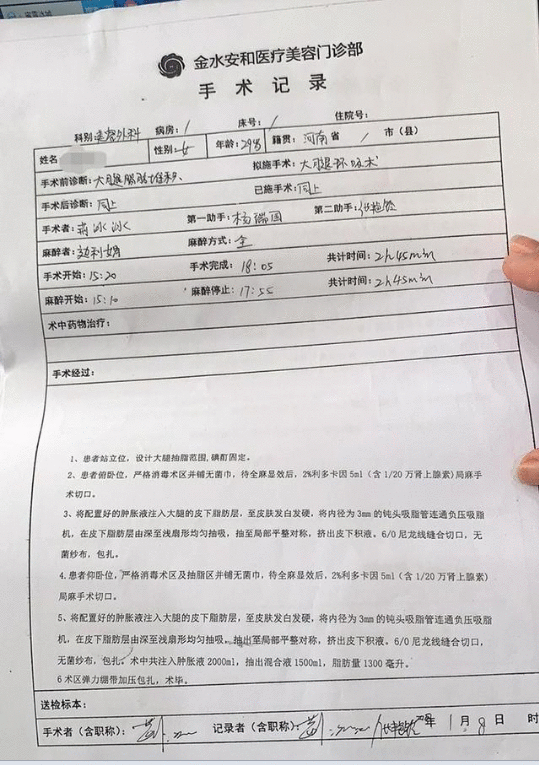 金水安和医疗美容门诊部
手术记录
科别 美容外科 病房：/ 床号：/ 住院号：
姓名 性别：女 年龄：29岁 籍贯：河南省 / 市（县）
手术前诊断：大腿脂肪堆积 拟施手术：大腿环吸术
手术后诊断：同上 已施手术：同上
手术者：蒋冰冰 第一助手：杨瑞国 第二助手：
麻醉者： 麻醉方式：全
手术开始：15:20 手术完成：18:05 共计时间：2h45min
麻醉开始：15:10 麻醉停止：17:55 共计时间：2h45min
术中药物治疗：
手术经过：
1、患者站立位，设计大腿抽脂范围，碘酊固定。
2、患者俯卧位，严格消毒术区并铺无菌巾，待全麻显效后，2%利多卡因5ml（含1/20万肾上腺素）局麻手
术切口。
3、将配置好的肿胀液注入大腿的皮下脂肪层，至皮肤发白发硬，将内径为3mm的钝头吸脂管连通负压吸脂
机，在皮下脂肪层由深至浅扇形均匀抽吸，抽至局部平整对称，挤出皮下积液。6/0尼龙线缝合切口，无
菌纱布，包扎。
4.患者仰卧位，严格消毒术区及抽脂区并铺无菌巾，待全麻显效后，2%利多卡因5ml（含1/20万肾上腺素）
局麻手术切口。
5、将配置好的肿胀液注入大腿的皮下脂肪层，至皮肤发白发硬，将内径为3mm的钝头吸脂管连通负压吸脂
机，在皮下脂肪层由深至浅扇形均匀抽吸，抽出至局部平整对称，挤出皮下积液。6/0尼龙线缝合切口，
无菌纱布，包扎。术中共注入肿胀液2000ml，抽出混合液1500ml，脂肪量1300毫升。
6术区弹力绷带加压包扎，术毕。
送检标本：
手术者（含职称）： 记录者（含职称）： 年1月8日 时